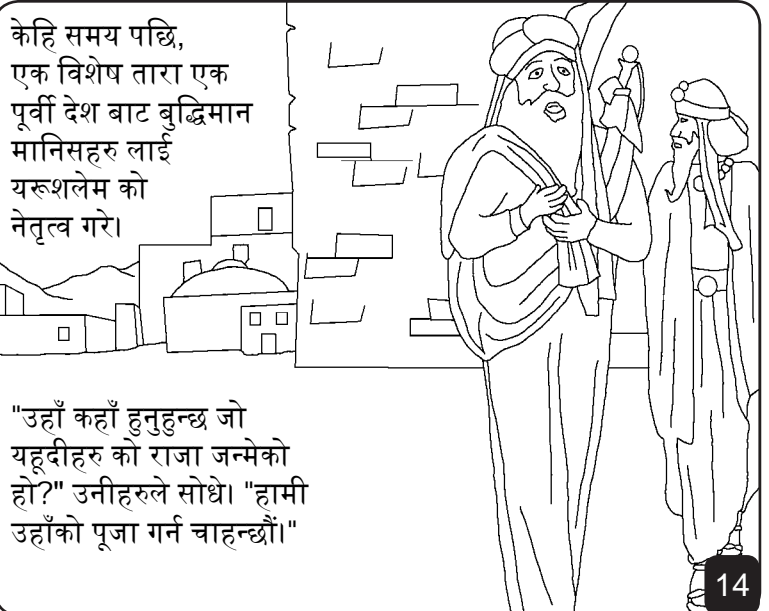 केहि समय पछि,
एक विशेष तारा एक
पूर्वी देश बाट बुद्धिमान
मानिसहरु लाई
यरूशलेम को
नेतृत्व गरे।
"उहाँ कहाँ हुनुहुन्छ जो
यहूदीहरु को राजा जन्मेको
हो?" उनीहरुले सोधे। "हामी
उहाँको पूजा गर्न चाहन्छौं।"
14